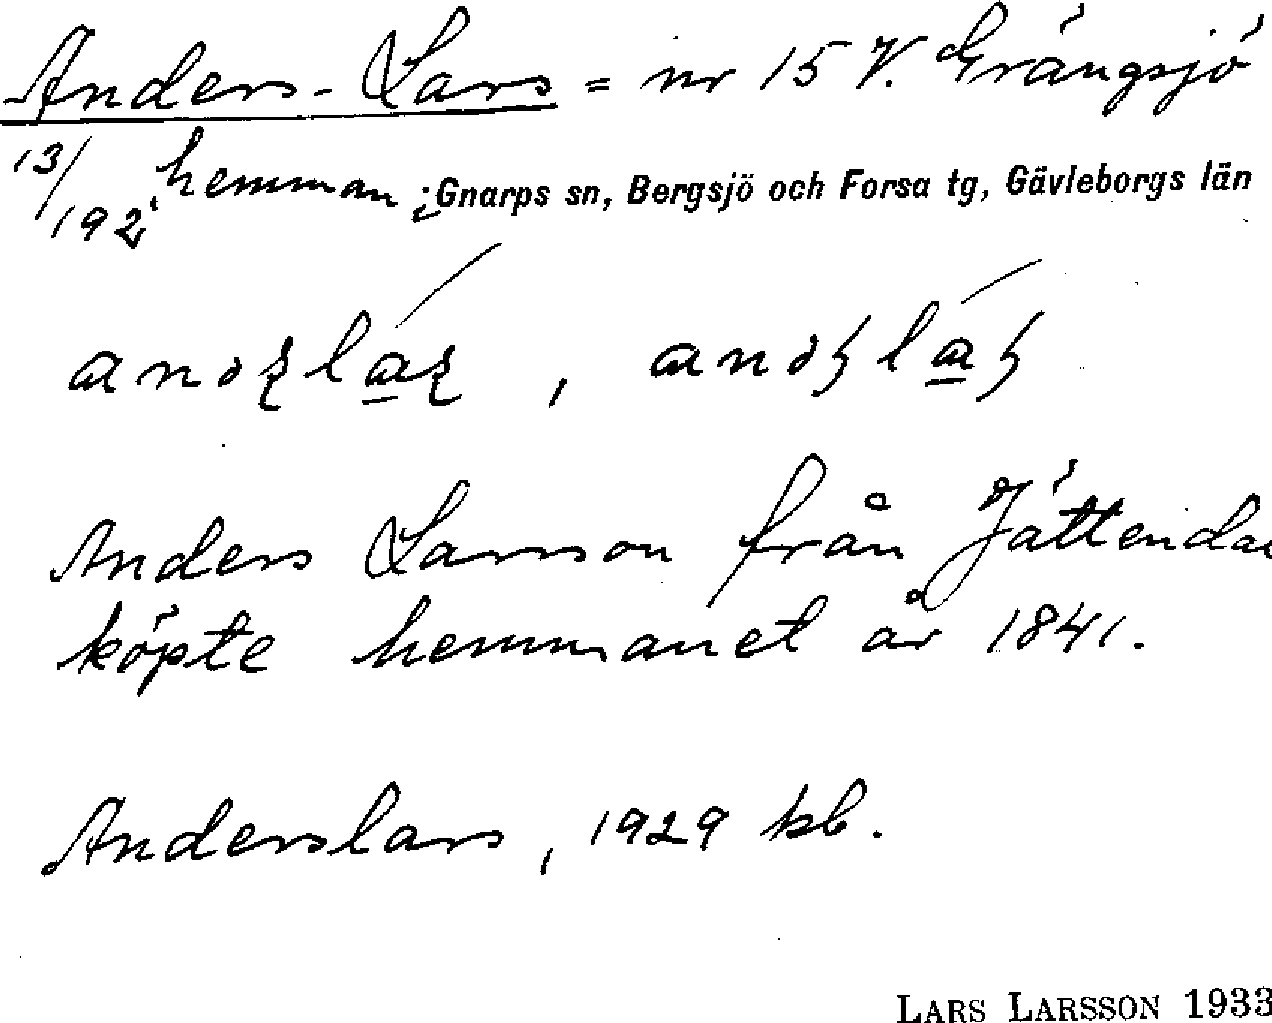 Anders-Lars = nr 15 V. Grängsjö
13/192 hemman i Gnarps sn, Bergsjö och Forsa tg, Gävleborgs län
Anders Larsson från Jättenda
köpte hemmanet år 1841.
Anderslars, 1929 kb.
LARS LARSSON 1933